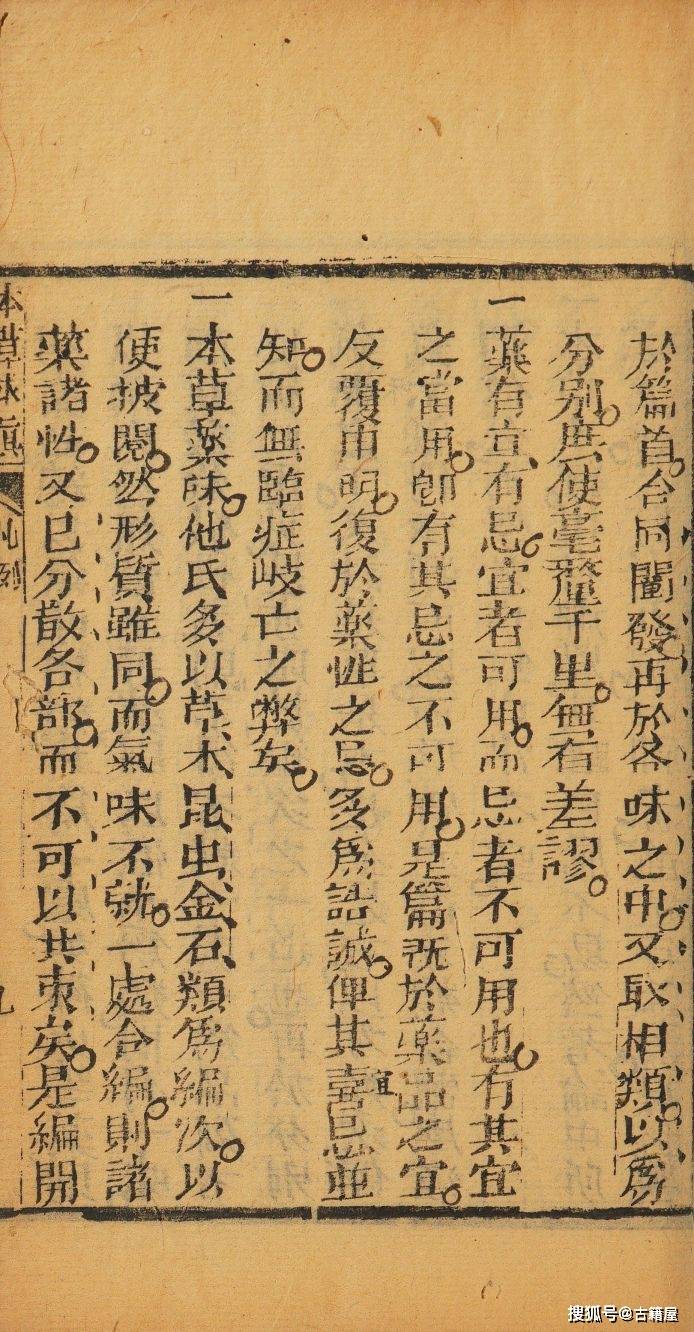 於篇首。合同闡發。再於各味之中。又取相類。以為
分别。庶使毫釐千里。無有差謬。
一藥有宜、有忌。宜者可用。而忌者不可用也。有其宜
之當用。卽有其忌之不可用。是篇旣於藥品之宜。
反覆申明。復於藥性之忌。多爲誥誡。俾其喜忌並
宜
知。而無臨症岐亡之弊矣。
一本草藥味。他氏多以草、木、昆虫、金、石、類爲編次。以
便披閱。然形質雖同。而氣味不就。一處合編。則諸
藥諸性。又已分散各部。而不可以共束矣。是編開
本草求眞
凡例
九
搜狐号@古籍屋